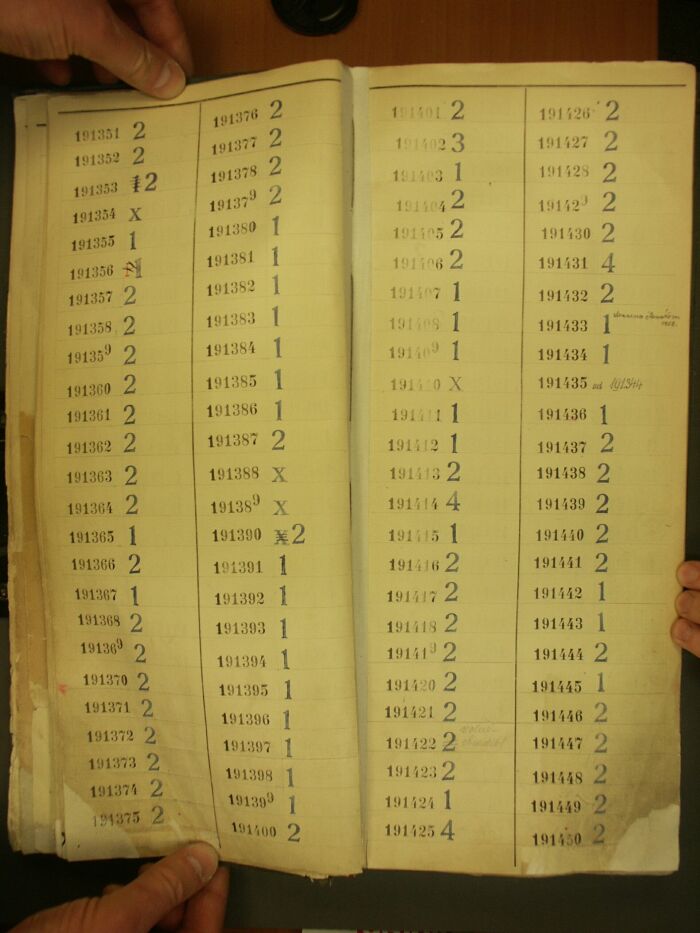 191351 2
191352 2
191353 2
191354 x
191355 1
191356 1
191357 2
191358 2
191359 2
191360 2
191361 2
191362 2
191363 2
191364 2
191365 1
191366 2
191367 1
191368 2
191369 2
191370 2
191371 2
191372 2
191373 2
191374 2
191375 2
191376 2
191377 2
191378 2
191379 2
191380 1
191381 1
191382 1
191383 1
191384 1
191385 1
191386 1
191387 2
191388 x
191389 x
191390 x 2
191391 1
191392 1
191393 1
191394 1
191395 1
191396 1
191397 1
191398 1
191399 1
191400 2
191401 2
191402 3
191403 1
191404 2
191405 2
191406 2
191407 1
191408 1
191409 1
191410 x
191411 1
191412 1
191413 2
191414 4
191415 1
191416 2
191417 2
191418 2
191419 2
191420 2
191421 2
191422 2
191423 2
191424 1
191425 4
191426 2
191427 2
191428 2
191429 2
191430 2
191431 4
191432 2
191433 1
191434 1
191435 191344
191436 1
191437 2
191438 2
191439 2
191440 2
191441 2
191442 1
191443 1
191444 2
191445 1
191446 2
191447 2
191448 2
191449 2
191450 2